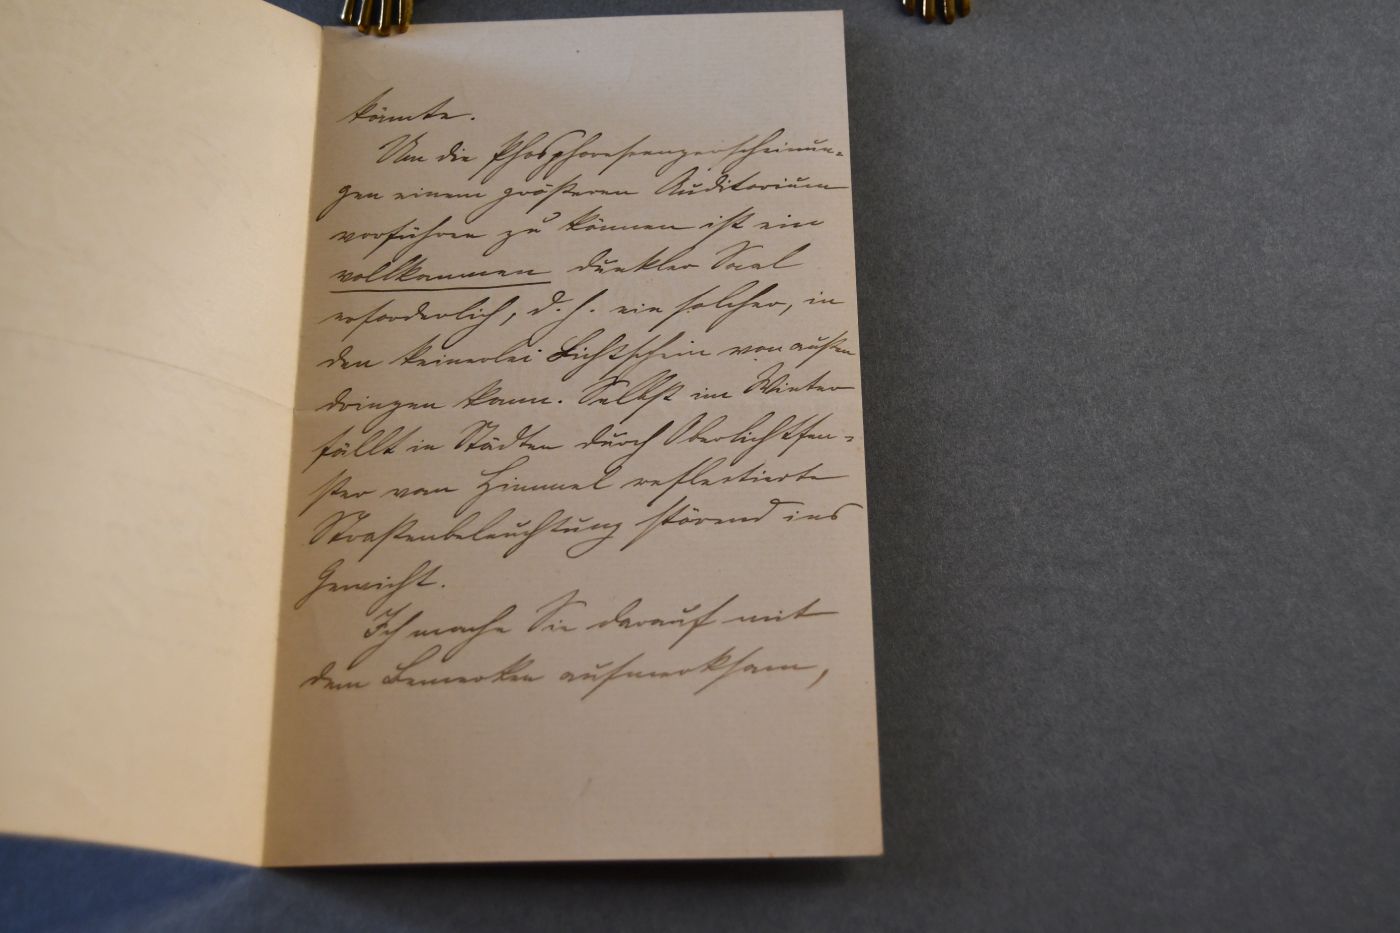 könnte.
Um die Phosphorescenzerscheinun-
gen einem größeren Auditorium
vorführen zu können ist ein
vollkommen dunkler Saal
erforderlich, d. h. ein solcher, in
den keinerlei Lichtschein von außen
dringen kann. Selbst im Winter
fällt in Städten durch Oberlichtfen-
ster vom Himmel reflectierte
Straßenbeleuchtung störend ins
Gewicht.
Ich mache Sie darauf mit
dem Bemerken aufmerksam,